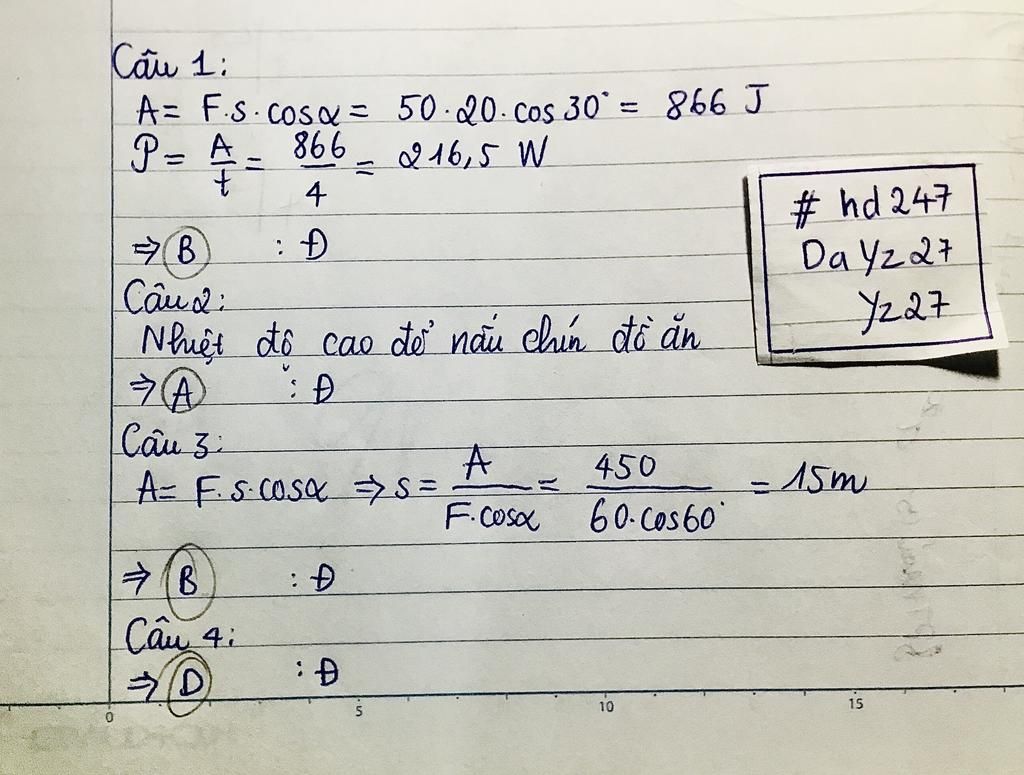 Câu 1:
A = F.s.cosα = 50.20.cos30° = 866 J
P = A/t = 866/4 = 216,5 W
⇒ B : Đ
Câu 2:
Nhiệt độ cao để nấu chín đồ ăn
⇒ A : Đ
Câu 3:
A = F.s.cosα ⇒ s = A/F.cosα = 450/60.cos60° = 15m
⇒ B : Đ
Câu 4:
⇒ D : Đ
0 5 10 15
# hd247
DaYz27
Yz27